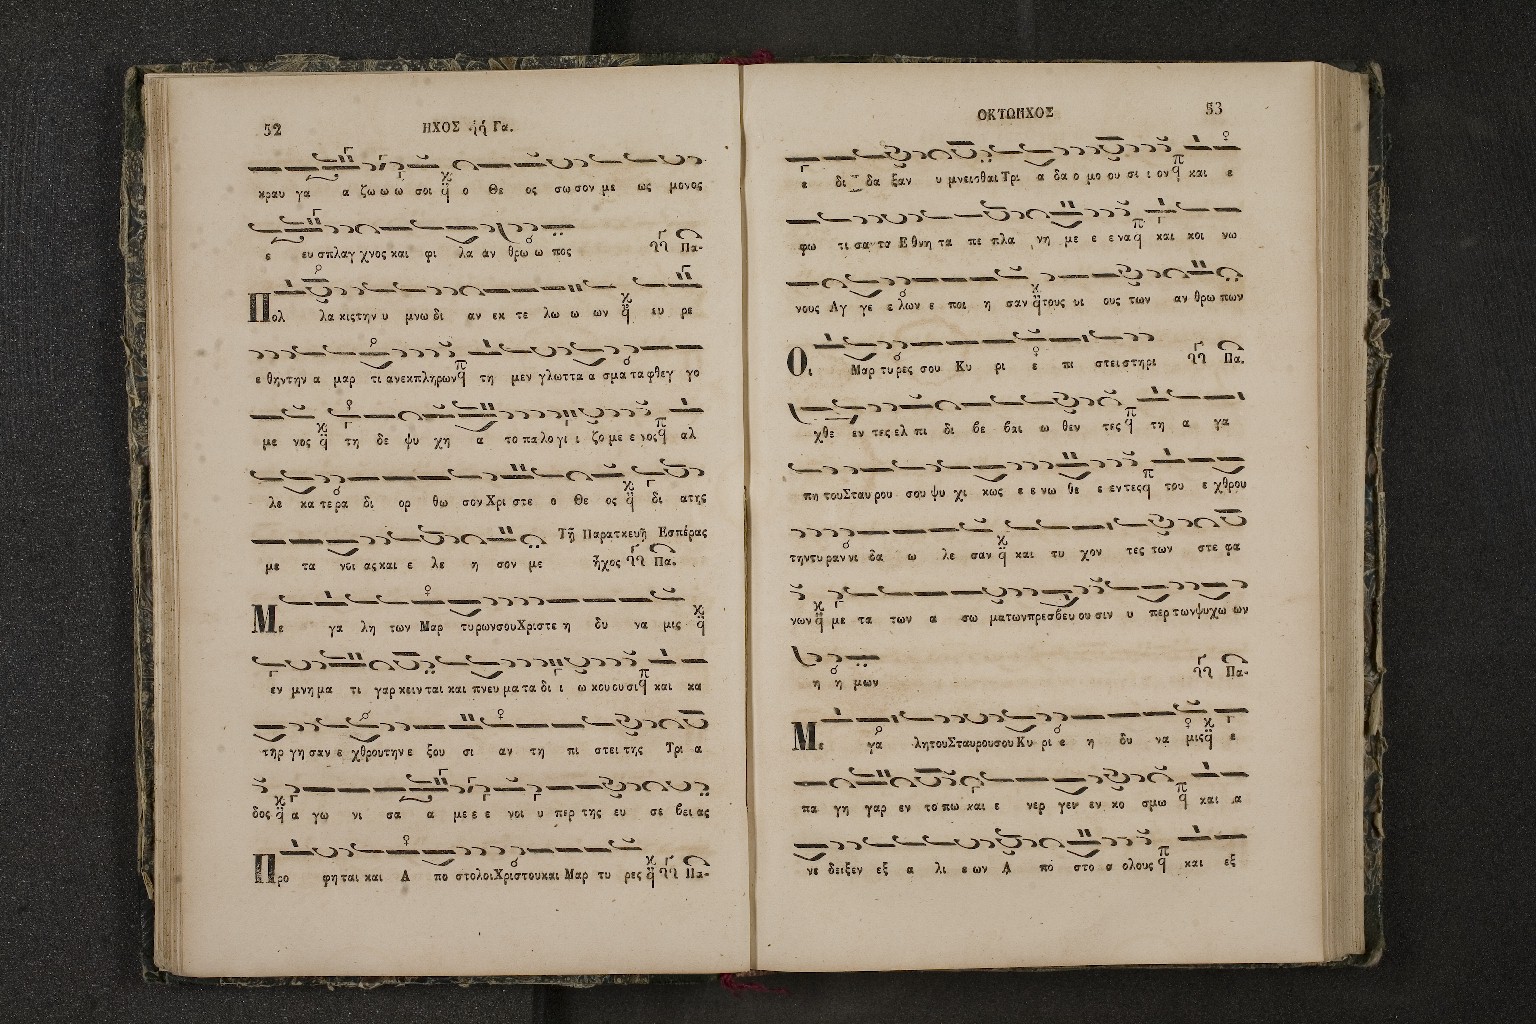 52
ΗΧΟΣ ἠή Γα.
κραυ γα α ζω ω ω σοι ο Θε ος σω σον με ως μονος
ε ευ σπλαγ χνος και φι λα αν θρω ω πος Πα-
Πολ λα κις την υ μνω δι αν εκ τε λω ω ων ευ ρε
ε θην την α μαρ τι αν εκ πληρων τη μεν γλωττα α σμα τα φθεγ γο
με νος τη δε ψυ χη α το πα λο γι ι ζο με ε νος αλ
λε κα τε ρα δι ορ θω σον Χρι στε ο Θε ος δι α της
με τα νοι ας και ε λε η σον με
Τῇ Παρασκευῇ Εσπέρας
ἦχος Πα.
Με γα λη των Μαρ τυρων σου Χριστε η δυ να μις
εν μνη μα τι γαρ κειν ται και πνευ μα τα δι ι ω κου ου σι και κα
τηρ γη σαν ε χθρου την ε ξου σι αν τη πι στει της Τρι α
δος α γω νι σα α με ε ε νοι υ περ της ευ σε βει ας
Προ φη ται και Α πο στολοι Χριστου και Μαρ τυ ρες Πα-
ΟΚΤΩΗΧΟΣ
53
ε δι δα ξαν υ μνεισθαι Τρι α δα ο μο ου σι ι ον και ε
φω τι σα τα Ε θνη τα πε πλα νη με ε ε να και κοι νω
νους Αγ γε ε λων ε ποι η σαν τους υι ους των αν θρω πων
Οι Μαρ τυ ρες σου Κυ ρι ε πι στει στηρι Πα.
χθε εν τες ελ πι δι βε βαι ω θεν τες τη α γα
πη του Σταυ ρου σου ψυ χι κως ε ε νω θε ε εν τες του ε χθρου
την τυ ραν νι δα ω λε σαν και τυ χον τες των στε φα
νων με τα των α σω ματων πρεσβευ ου σιν υ περ των ψυχω ων
η η μων Πα-
Με γα λη του Σταυρου σου Κυ ρι ε η δυ να μις ε
πα γη γαρ εν το πω και ε νερ γει εν κο σμω και α
νε δειξεν εξ α λι ε ων Α πο στο ο λους και εξ